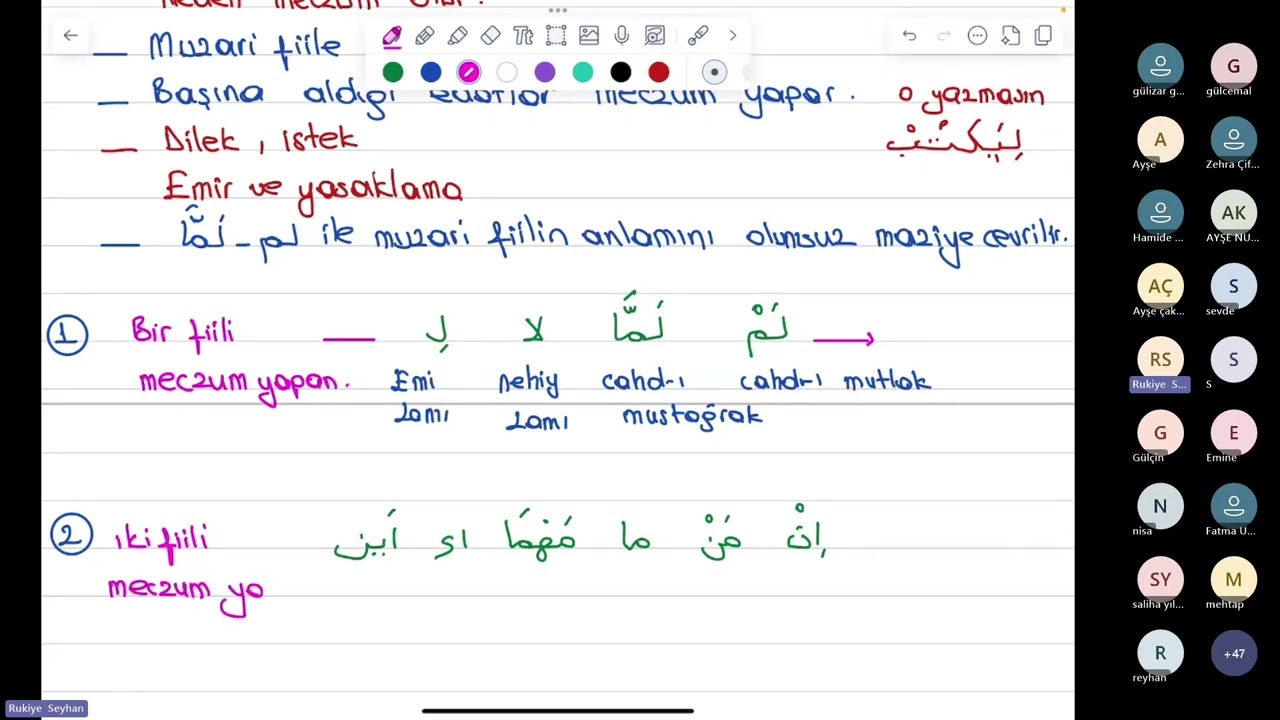 — Muzari fiile
— Başına aldığı edatlar meczum yapar. O yazmasın
— Dilek, istek لِيَكْتُبْ
Emir ve yasaklama
— لَمَّا - لم ile muzari fiilin anlamını olumsuz maziye çevrilir.
1 Bir fiili — لِ لا لَمَّا لَمْ →
meczum yapan. Emi nehiy cahd-ı cahd-ı mutlak
Lamı Lamı mustağrak
2 iki fiili أَين اى مَهْمَا ما مَنْ إِنْ
meczum ya
gülizar g... G gülcemal
A Ayşe Zehra Çif...
Hamide ... AK AYŞE NU...
AÇ Ayşe çak... S sevde
RS Rukiye S... S S
G Gülçin E Emine
N nisa Fatma U...
SY saliha yıl... M mehtap
R reyhan +47
Rukiye Seyhan